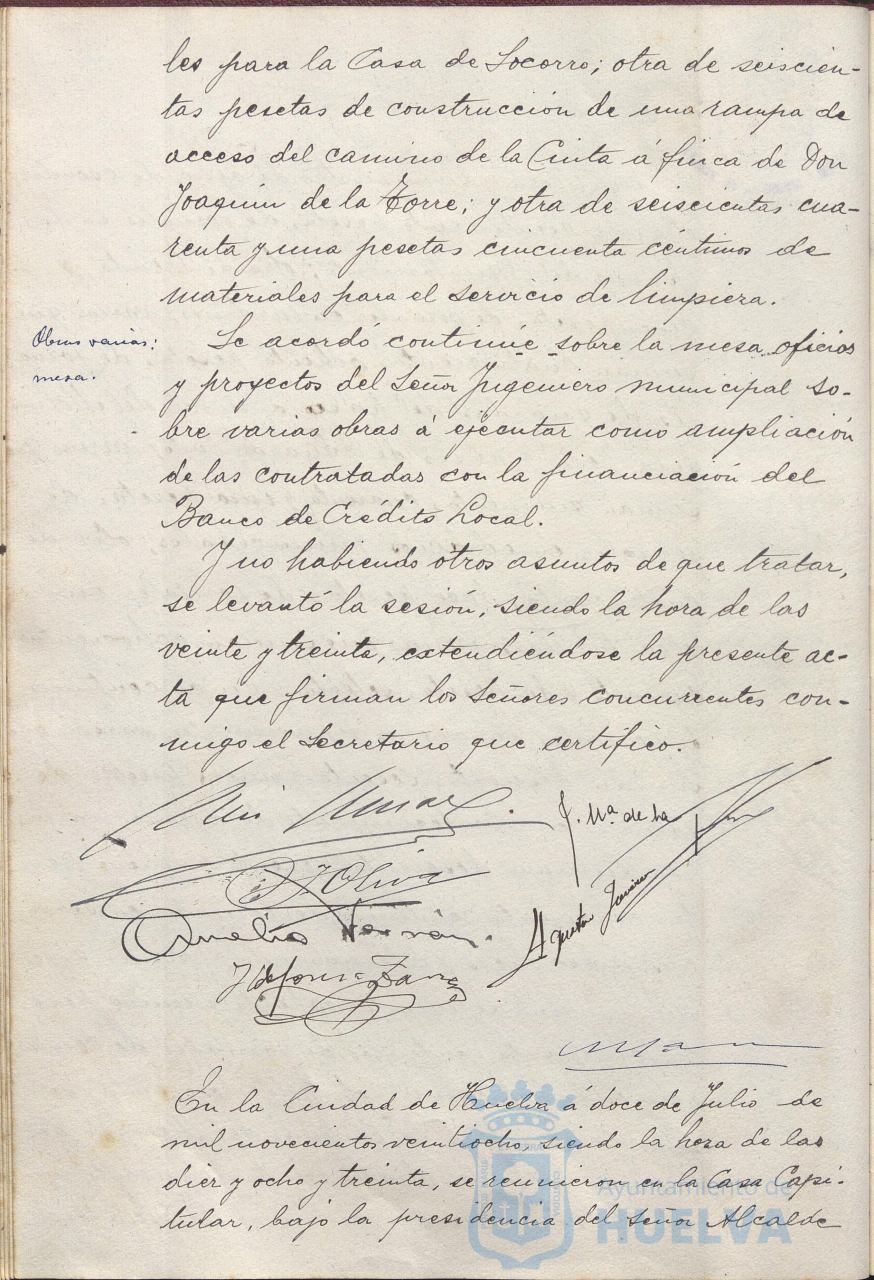 les para la Casa de Socorro; otra de seiscien-
tas pesetas de construcción de una rampa de
acceso del camino de la Cinta á finca de Don
Joaquín de la Torre; y otra de seiscientas cua-
renta y una pesetas cincuenta céntimos de
materiales para el servicio de limpieza.
Obras varias:
mesa.
Se acordó continúe sobre la mesa oficios
y proyectos del Señor Ingeniero municipal so-
bre varias obras á ejecutar como ampliación
de las contratadas con la financiación del
Banco de Crédito Local.
Y no habiendo otros asuntos de que tratar,
se levantó la sesión, siendo la hora de las
veinte y treinta, extendiéndose la presente ac-
ta que firman los Señores concurrentes con-
migo el Secretario que certifico.
J. Mª. de la
Oliva
Agustín Jiménez
En la Ciudad de Huelva á doce de Julio de
mil novecientos veintiocho, siendo la hora de las
diez y ocho y treinta, se reunieron en la Casa Capi-
tular, bajo la presidencia del señor Alcalde
Ayuntamiento de
HUELVA